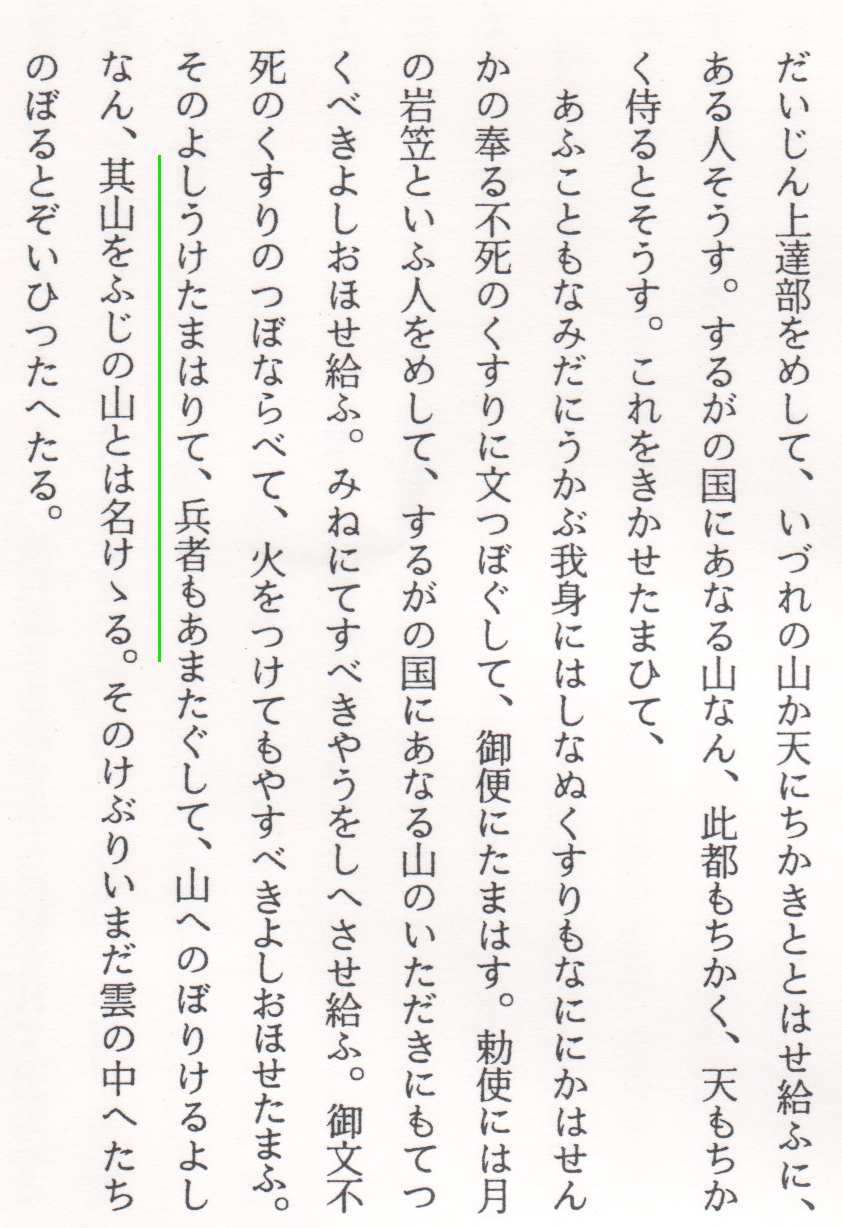 だいじん上達部をめして、いづれの山か天にちかきととはせ給ふに、
ある人そうす。するがの国にあなる山なん、此都もちかく、天もちか
く侍るとそうす。これをきかせたまひて、
あふこともなみだにうかぶ我身にはしなぬくすりもなににかはせん
かの奉る不死のくすりに文つぼぐして、御便にたまはす。勅使には月
の岩笠といふ人をめして、するがの国にあなる山のいただきにもてつ
くべきよしおほせ給ふ。みねにてすべきやうをしへさせ給ふ。御文不
死のくすりのつぼならべて、火をつけてもやすべきよしおほせたまふ。
そのよしうけたまはりて、兵者もあまたぐして、山へのぼりけるよし
なん、其山をふじの山とは名けゝる。そのけぶりいまだ雲の中へたち
のぼるとぞいひつたへたる。